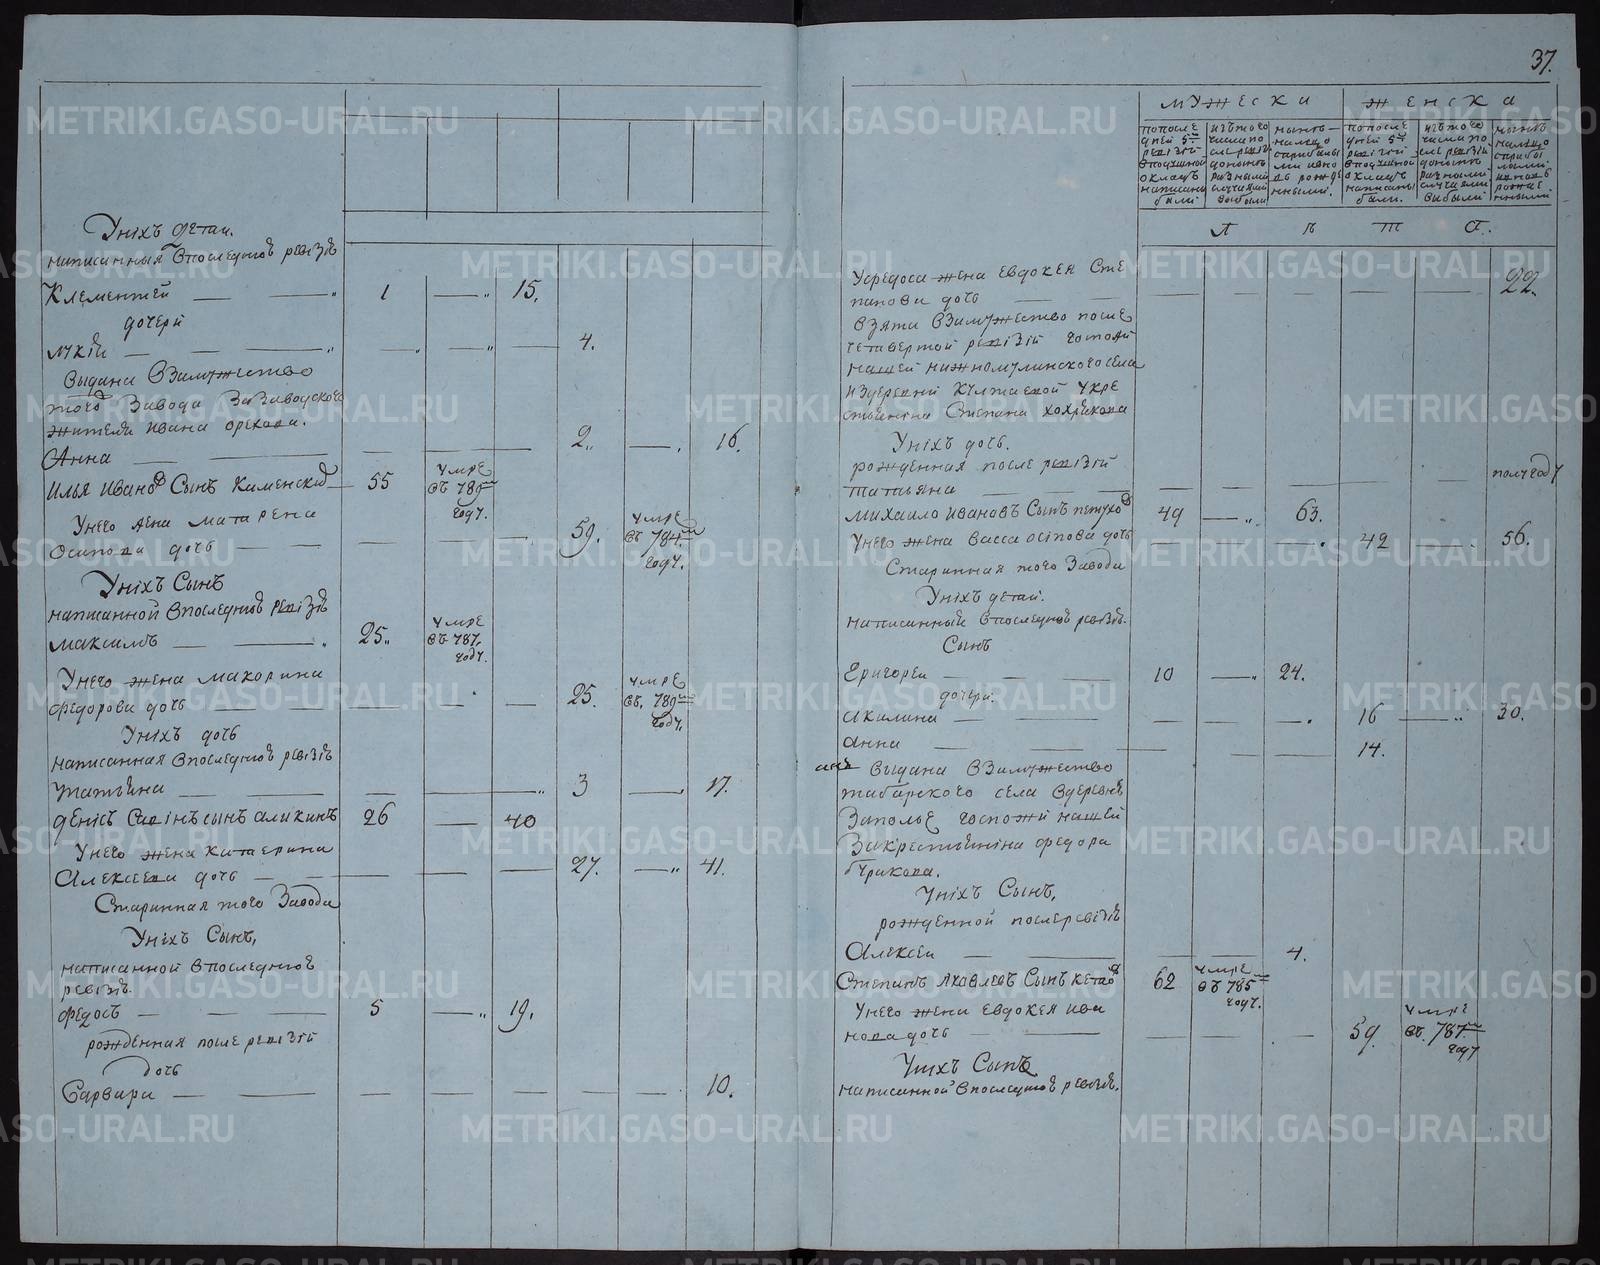 Унихъ детаи.
написанныя впоследнов ревизiѣ
Клементей — — 1 — 15.
дочери
лукiи — — — 4.
выдана взамужество
того завода зазаводского
жителя ивана орехова.
Анна — — — 2. — 16.
илья иванов сынъ каменской — 55 умре въ 789м году.
Унего жена матарена
осипова дочь — — — 59. умре въ 784м году.
Унихъ сынъ
написанной впоследнов ревизiѣ
максимъ — — 25. умре въ 787. году.
Унего жена макорина
федорова дочь — — — 25. умре въ. 789 году.
Унихъ дочь
написанная впоследнов ревизiѣ
татьяна — — — 3 — 17.
денис савiнъ сынъ аликинъ 26 — 40
Унего жена катаерина
Алексеева дочь — — — 27. — 41.
Старинная того Завода
Унихъ сынъ,
написанной впоследнов
ревизiѣ
федосъ — — 5 — 19.
рожденная после ревизiй
дочь
Варвара — — — 10.
37.
мужеска женска
попосле дней 5й ревизiй вподушной окладъ написаны были
изътого числа после ревизiй доныне разными случаями выбыли
ныне налицо сприбылыми ивновь рожденными.
попосле дней 5й ревизiй вподушной окладъ написаны были.
изътого числа после ревизiй доныне разными случаями выбыли
ныне налицо сприбылыми ивновь рожденными
л ѣ т а.
Уфедоса жена евдокея сте
панова дочь — — — 22.
взята взамужество после
четвертой ревизiй госпожи
нашей нижномулинского села
издеревни култаевой укре
стьянина степана хохрякова
Унихъ дочь.
рожденная после ревизiй
татьяна — — — полугоду
михаило ивановъ сынъ петухов 49 — 63.
Унего жена васса осiпова дочь — — 42 — 56.
Старинная того завода
Унихъ детаи.
написанныи впоследнов ревизiѣ.
Сынъ
Григореи — — 10 — 24.
дочери.
акилина — — — 16 — 30.
анна — — — 14.
выдана взамужество
табарского села вдеревнѣ
Заполье госпожи нашей
Закрестьянiна федора
бурикова.
Унихъ сынъ,
рожденной послеревизiѣ
Алексеи — — — 4.
Степанъ яковлевъ сынъ кетов 62 умре въ 785 году.
Унего жена евдокея ива
нова дочь — — — 59. умре въ. 787м году
Унихъ сынъ
написанной впоследнов ревизiѣ.